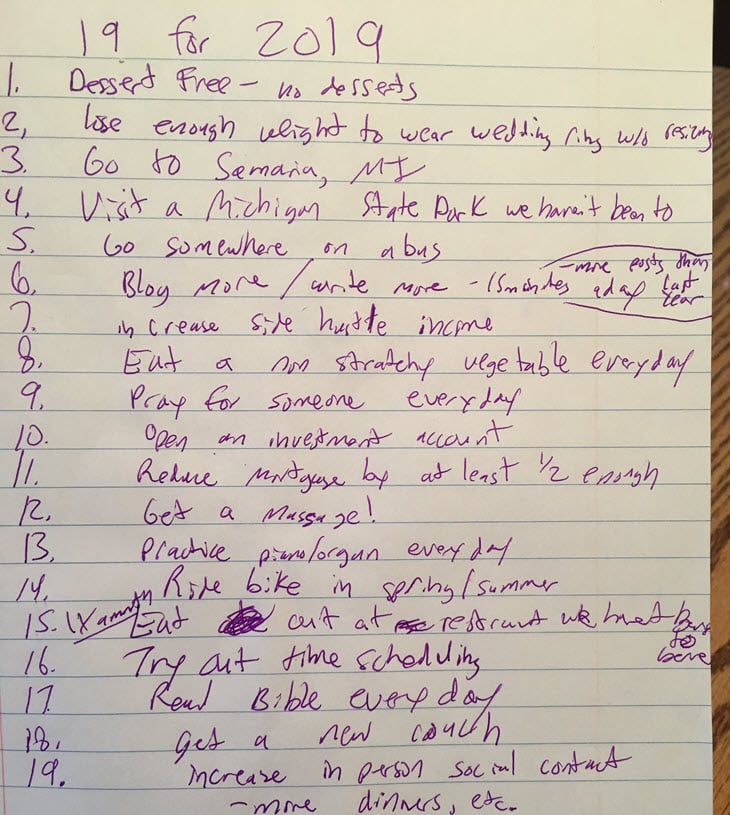 19 for 2019
1. Dessert Free - no desserts
2, lose enough weight to wear wedding ring w/o resizing
3. Go to Samaria, MI
4. Visit a Michigan State Park we haven't been to
5. Go somewhere on a bus
6, Blog more / write more - 15 minutes a day - more posts than last year
7. increase side hustle income
8. Eat a non stratchy vegetable everyday
9. Pray for someone everyday
10. Open an investment account
11. Reduce mortgage by at least 1/2 enough
12. Get a Massage!
13. Practice piano/organ everyday
14. Ride bike in spring/summer
15. 1x a month Eat out at restraunt we haven't been to
16. Try out time scheduling
17. Read Bible every day
18. get a new couch
19. increase in person social contact
- more dinners, etc.